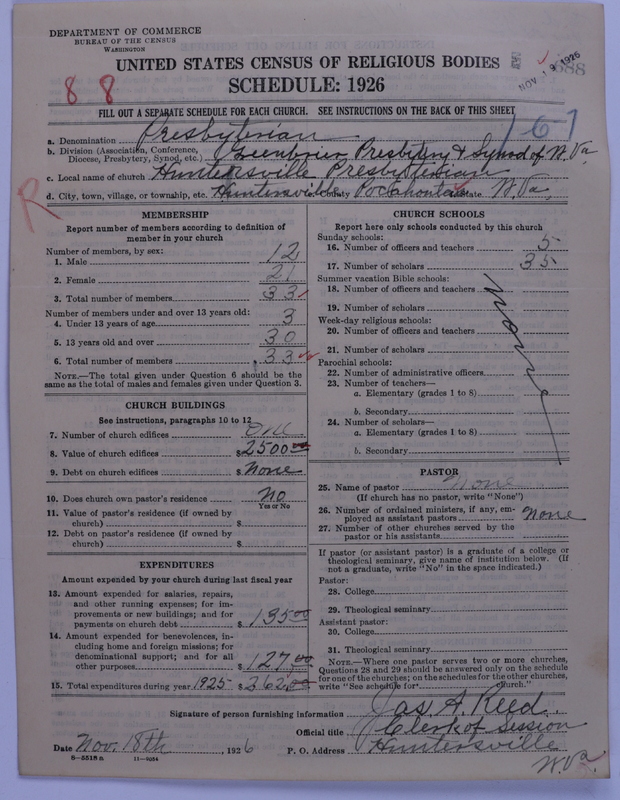 DEPARTMENT OF COMMERCE
BUREAU OF THE CENSUS
WASHINGTON
UNITED STATES CENSUS OF RELIGIOUS BODIES
SCHEDULE: 1926
88
NOV 19 1926
FILL OUT A SEPARATE SCHEDULE FOR EACH CHURCH. SEE INSTRUCTIONS ON THE BACK OF THIS SHEET
167
a. Denomination Presbyterian
b. Division (Association, Conference, Diocese, Presbytery, Synod, etc.) Greenbrier Presbytery & Synod of W. Va.
c. Local name of church Huntersville Presbyterian
d. City, town, village, or township, etc. Huntersville County Pocahontas State W. Va.
R
MEMBERSHIP
Report number of members according to definition of
member in your church
Number of members, by sex:
1. Male 12
2. Female 21
3. Total number of members 33
Number of members under and over 13 years old:
4. Under 13 years of age 3
5. 13 years old and over 30
6. Total number of members 33
NOTE.—The total given under Question 6 should be
same as the total of males and females given under Question 3.
CHURCH BUILDINGS
See instructions, paragraphs 10 to 12
7. Number of church edifices One
8. Value of church edifices $2500.00
9. Debt on church edifices $None
10. Does church own pastor's residence No
Yes or No
11. Value of pastor's residence (if owned by
church) $
12. Debt on pastor's residence (if owned by
church) $
EXPENDITURES
Amount expended by your church during last fiscal year
13. Amount expended for salaries, repairs,
and other running expenses; for im-
provements or new buildings; and for
payments on church debt $135.00
14. Amount expended for benevolences, in-
cluding home and foreign missions; for
denominational support; and for all
other purposes $127.00
15. Total expenditures during year 1925 $262.00
CHURCH SCHOOLS
Report here only schools conducted by this church
Sunday schools:
16. Number of officers and teachers 5
17. Number of scholars 35
Summer vacation Bible schools:
18. Number of officers and teachers
19. Number of scholars
Week-day religious schools:
20. Number of officers and teachers
21. Number of scholars
None
Parochial schools:
22. Number of administrative officers
23. Number of teachers—
a. Elementary (grades 1 to 8)
b. Secondary
24. Number of scholars—
a. Elementary (grades 1 to 8)
b. Secondary
PASTOR
25. Name of pastor None
(If church has no pastor, write "None")
26. Number of ordained ministers, if any, em-
ployed as assistant pastors None
27. Number of other churches served by the
pastor or his assistants
If pastor (or assistant pastor) is a graduate of a college or
theological seminary, give name of institution below. (If
not a graduate, write "No" in the space indicated.)
Pastor:
28. College
29. Theological seminary
Assistant pastor:
30. College
31. Theological seminary
NOTE.—Where one pastor serves two or more churches,
Questions 28 and 29 should be answered only on the schedule
for one of the churches; on the schedules for the other churches,
write "See schedule for church."
Signature of person furnishing information Jas. A. Reed
Official title Clerk of Session
Date Nov. 18th, 1926 P. O. Address Huntersville
W. Va.
8-5518a 11-9054